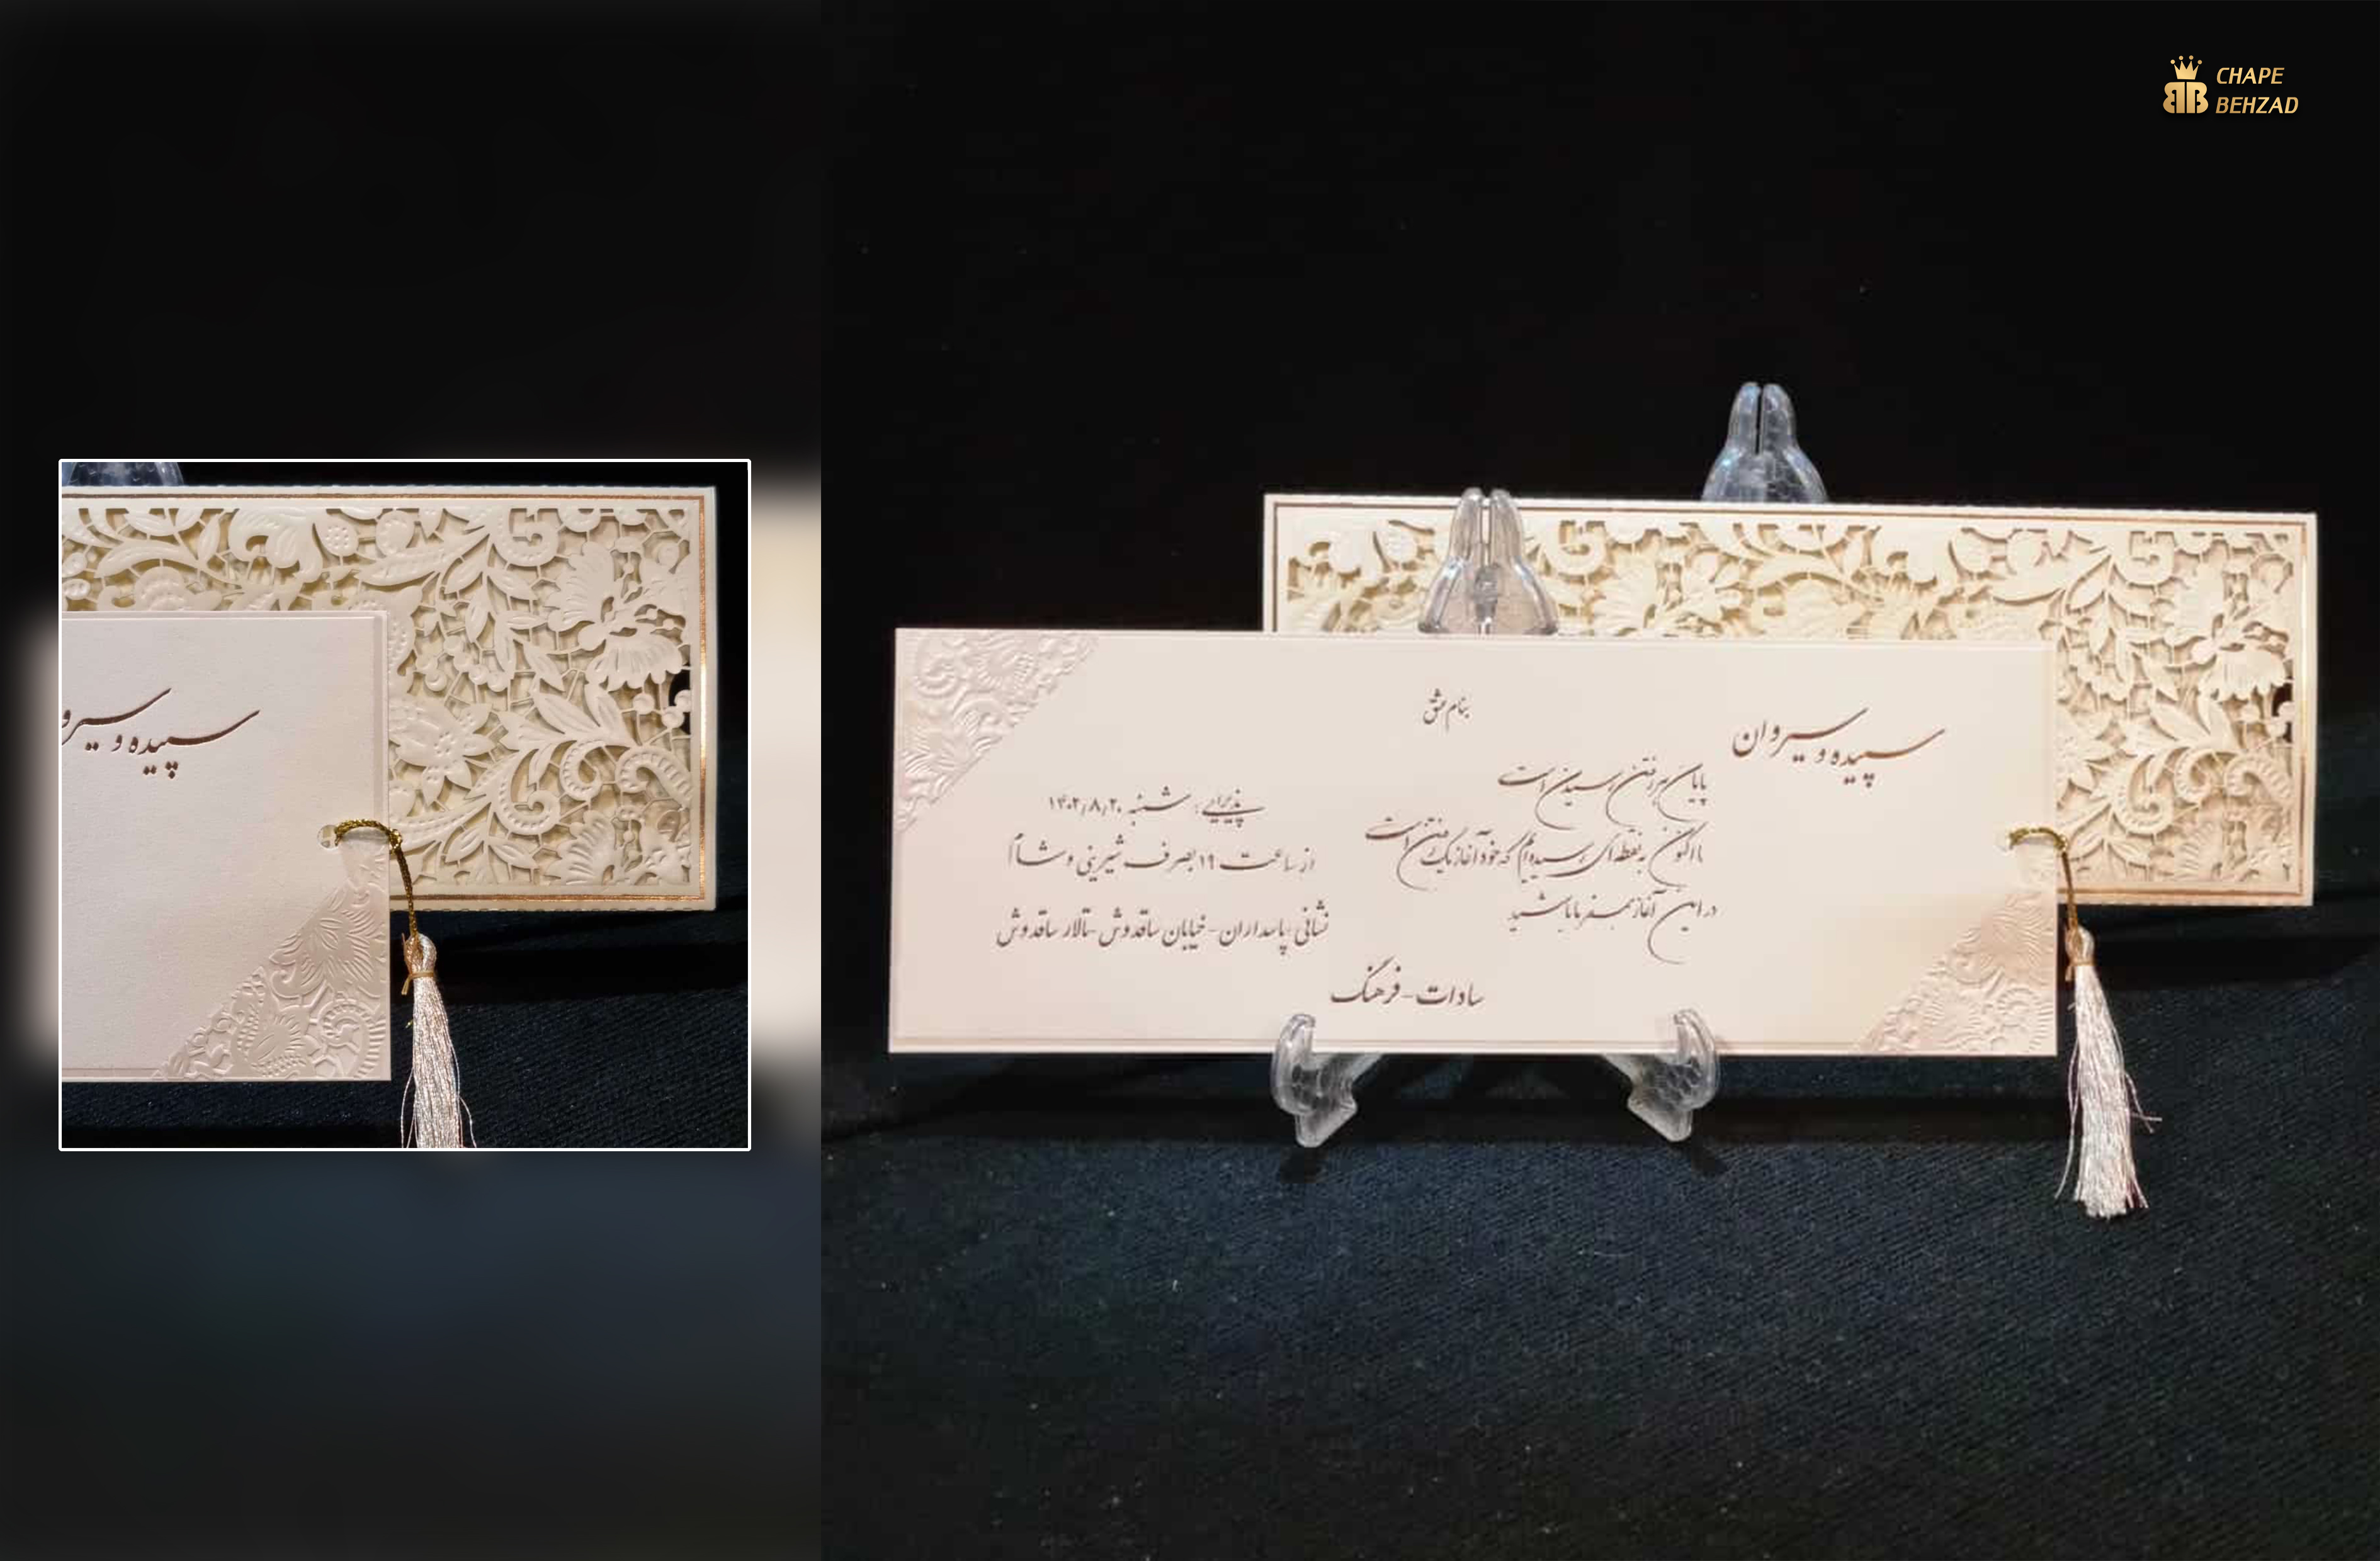 CHAPE
BEHZAD
سپیده و سیروان
بنام عشق
پایان هر رفتن رسیدن است
ما اکنون به نقطه ای رسیده ایم که خود آغاز یک رفتن است
در این آغاز همسفر ما باشید
پذیرایی: شنبه ۱۴۰۲/۸/۲۰
از ساعت ۱۹ بصرف شیرینی و شام
نشانی: پاسداران - خیابان ساقدوش - تالار ساقدوش
سادات - فرهنگ
سپیده و سیرو